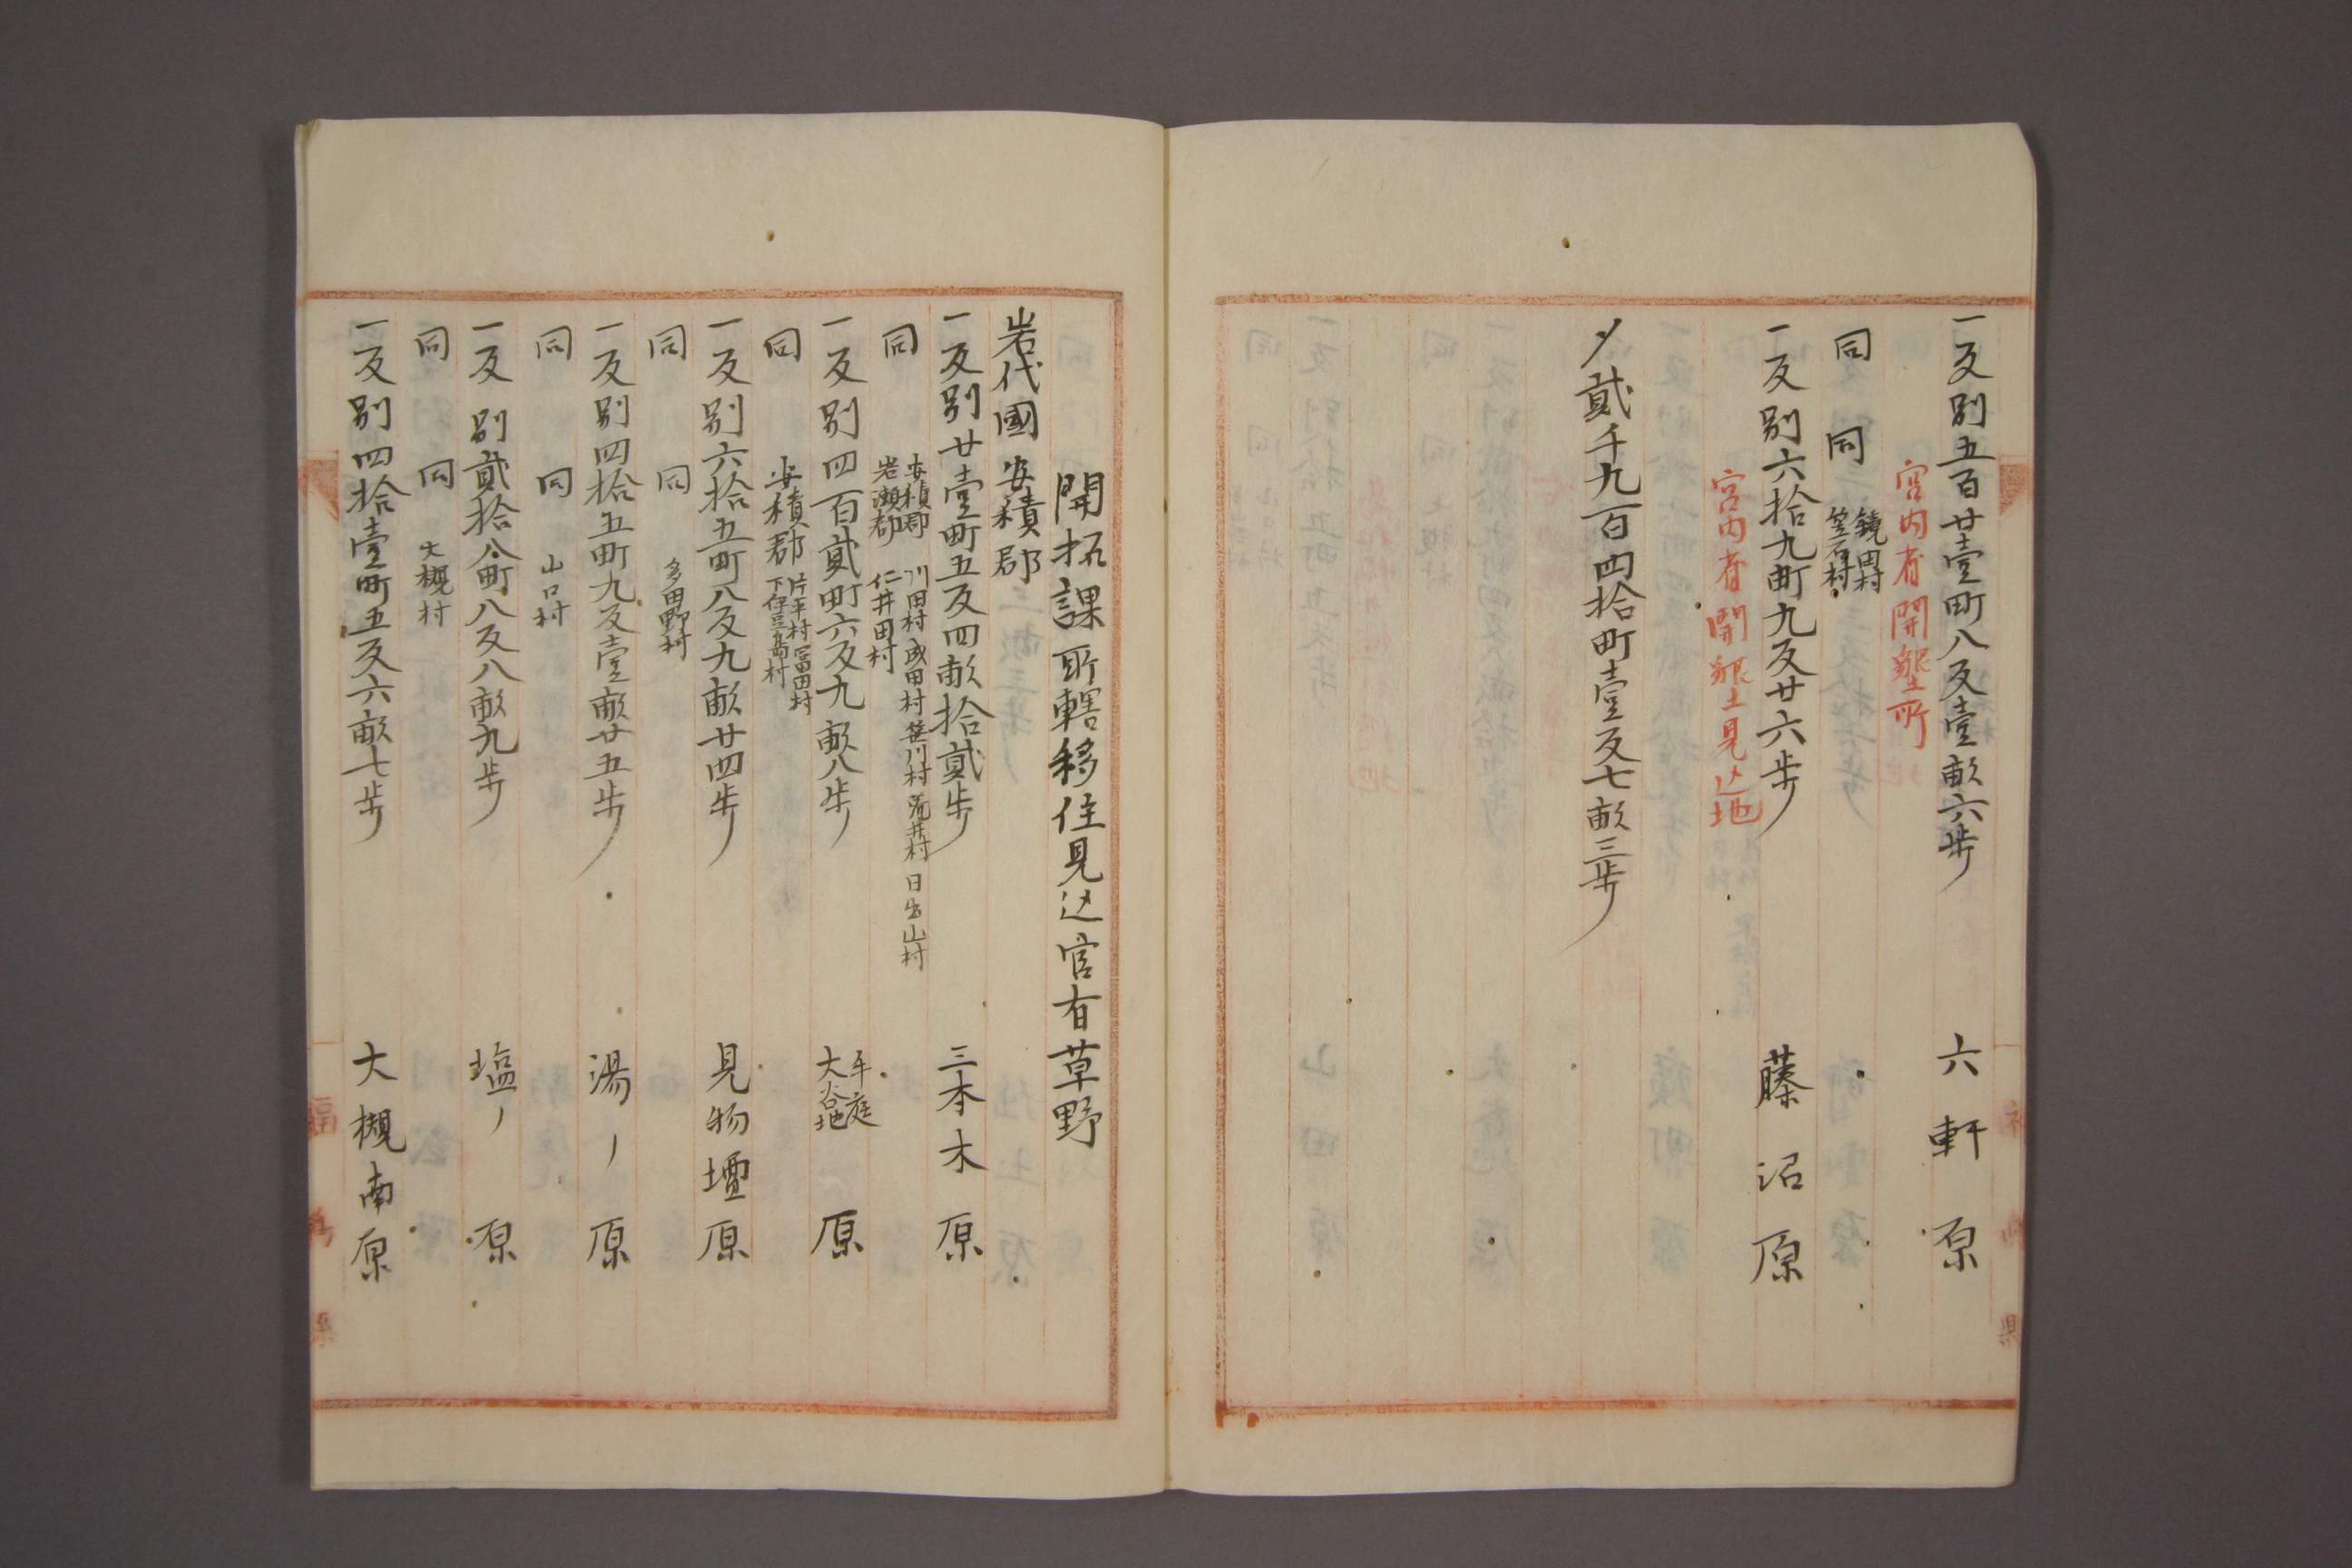 一反別五百廿壹町八反壹畝六歩 六軒原
宮内省開墾所
同 同 鏡田村 笠石村
一反別六拾九町九反廿六歩 藤沼原
宮内省開墾見込地
〆貳千九百四拾町壹反七畝三歩
開拓課所轄移住見込官有草野
岩代國安積郡
一反別廿壹町五反四畝拾貳歩 三本木原
同 安積郡 川田村 成田村 笹川村 荒井村 日出山村
岩瀬郡 仁井田村
一反別四百貳町六反九畝八歩 平庭 大谷地 原
同 安積郡 片平村 冨田村
下伊豆島村
一反別六拾五町八反九畝廿四歩 見物壇原
同 同 多田野村
一反別四拾五町九反壹畝廿五歩 湯ノ原
同 同 山口村
一反別貳拾八町八反八畝九歩 塩ノ原
同 同 大槻村
一反別四拾壹町五反六畝七歩 大槻南原